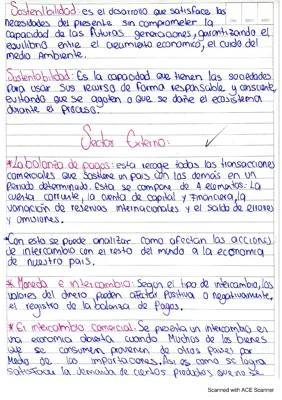 Sostenibilidad: es el desarrollo que satisface las
necesidades del presente sin comprometer la
capacidad de las futuras generaciones, garantizando el
equilibrio entre el crecimiento económico, el cuido del
medio Ambiente.
Sustentabilidad: Es la capacidad que tienen las sociedades
para usar sus recurso de forma responsable y consciente,
evitando que se agoten o que se dañe el ecosistema
durante el proceso.
Sector Externo:
*La balanza de pagos: esta recoge todas las transacciones
comerciales que sostiene un país con los demás en un
Periodo determinado. Esta se compone de 4 elementos: la
cuenta corriente, la cuenta de capital y financiera, la
variación de reservas internacionales y el saldo de errores
y omisiones.
*Con esto se puede analizar como afectan las acciones
de intercambio con el resto del mundo a la economía
de nuestro país.
* Moneda e intercambio: Según el tipo de intercambio, los
valores del dinero pueden afectar Positiva o negativamente,
el registro de la balanza de Pagos.
* El intercambio comercial: Se presenta un intercambio en
una economía abierta cuando Muchos de los bienes
que se consumen provienen de otros países por
Medio de las importaciones. Así es como se logra
satisfacer la demanda de ciertos productos que no se
Scanned with ACE Scanner